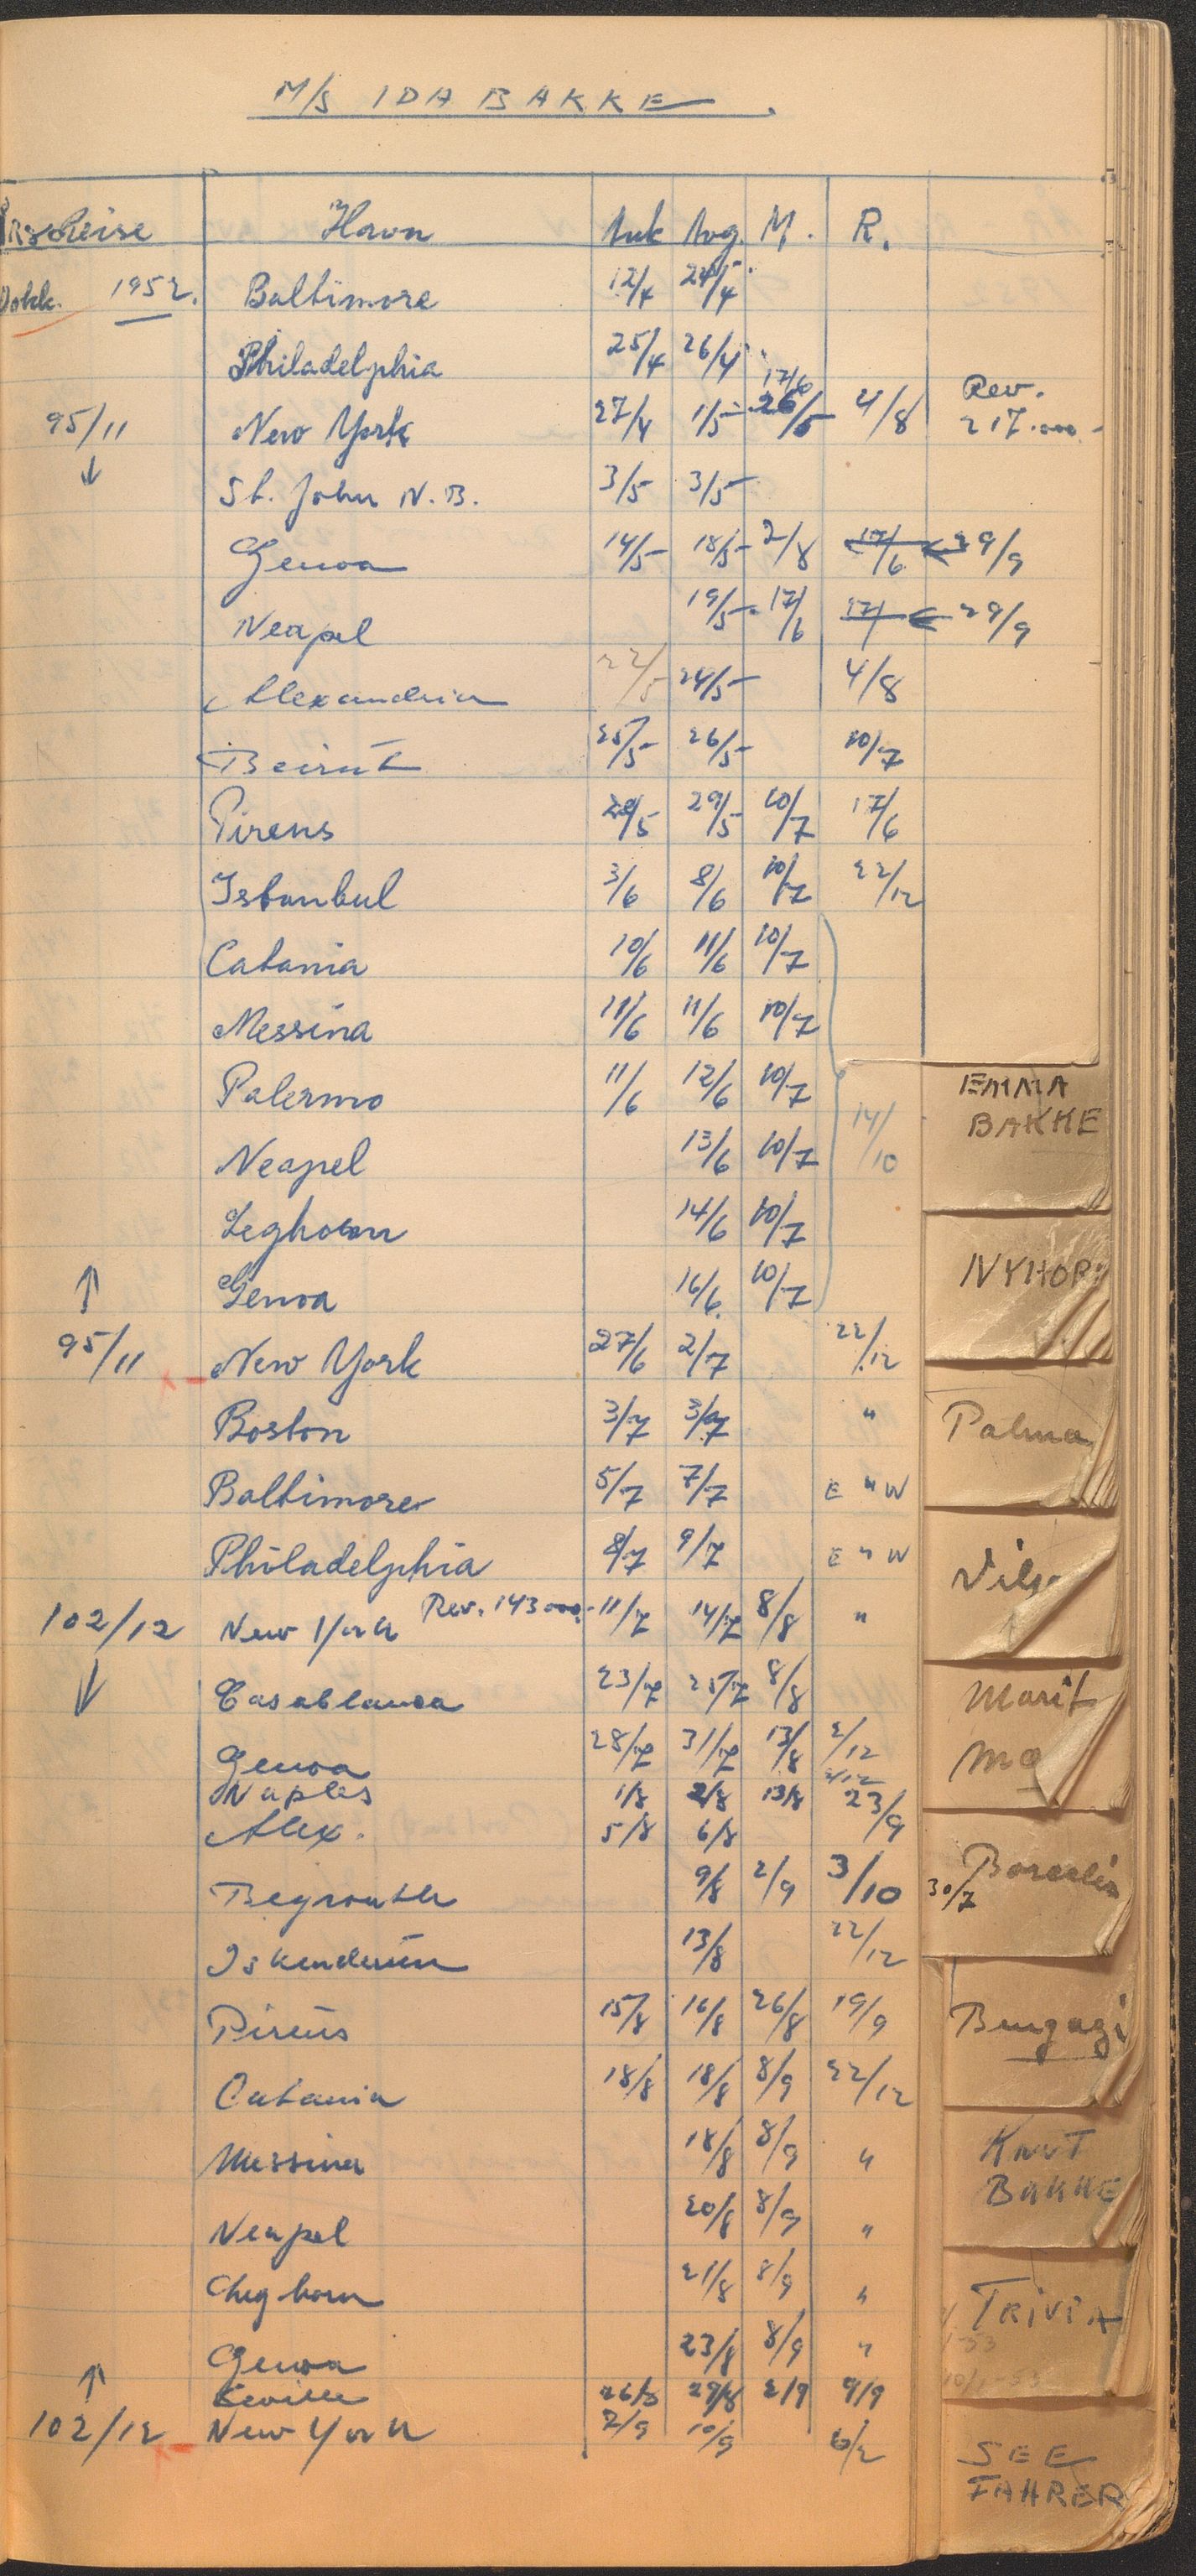 M/S IDA BAKKE.
Reise Havn Ank Avg. M. R.
Dokk. 1952. Baltimore 12/4 24/4
Philadelphia 25/4 26/4
17/6 Rev.
95/11 New York 27/4 1/5 26/5 4/8 217.000-
↓ St. John N.B. 3/5 3/5
Genoa 14/5 18/5 2/8 17/6 ← 29/9
Neapel 19/5 17/6 17/ ← 29/9
Alexandria 22/5 24/5 4/8
Beirut 25/5 26/5 10/7
Pireus 28/5 29/5 10/7 17/6
Istanbul 3/6 8/6 10/7 22/12
Catania 10/6 11/6 10/7
Messina 11/6 11/6 10/7
Palermo 11/6 12/6 10/7
Neapel 13/6 10/7 14/10
Leghorn 14/6 10/7
↑ Genoa 16/6 10/7
95/11 New York 27/6 2/7 22/12
Boston 3/7 3/7 "
Baltimore 5/7 7/7 E " W
Philadelphia 8/7 9/7 E " W
102/12 New York Rev. 143000.- 11/7 14/7 8/8 "
↓ Casablanca 23/7 25/7 8/8
Genoa 28/7 31/7 13/8 2/12
Naples 1/8 2/8 13/8 2/12
Alex. 5/8 6/8 23/9
Beyrouth 9/8 2/9 3/10
Iskenderun 13/8 22/12
Pireus 15/8 16/8 26/8 19/9
Catania 18/8 18/8 8/9 22/12
Messina 18/8 8/9 "
Neapel 20/8 8/9 "
Leghorn 21/8 8/9 "
↑ Genoa 23/8 8/9 "
Seville 26/8 29/8 2/9 9/9
102/12 New York 7/9 10/9 6/2
EMMA
BAKKE
NYHOR
Palma
Vils
Marit
Ma
30/7
Bengazi
KNUT
BAKKE
TRIVIA
SEE
FAHRER